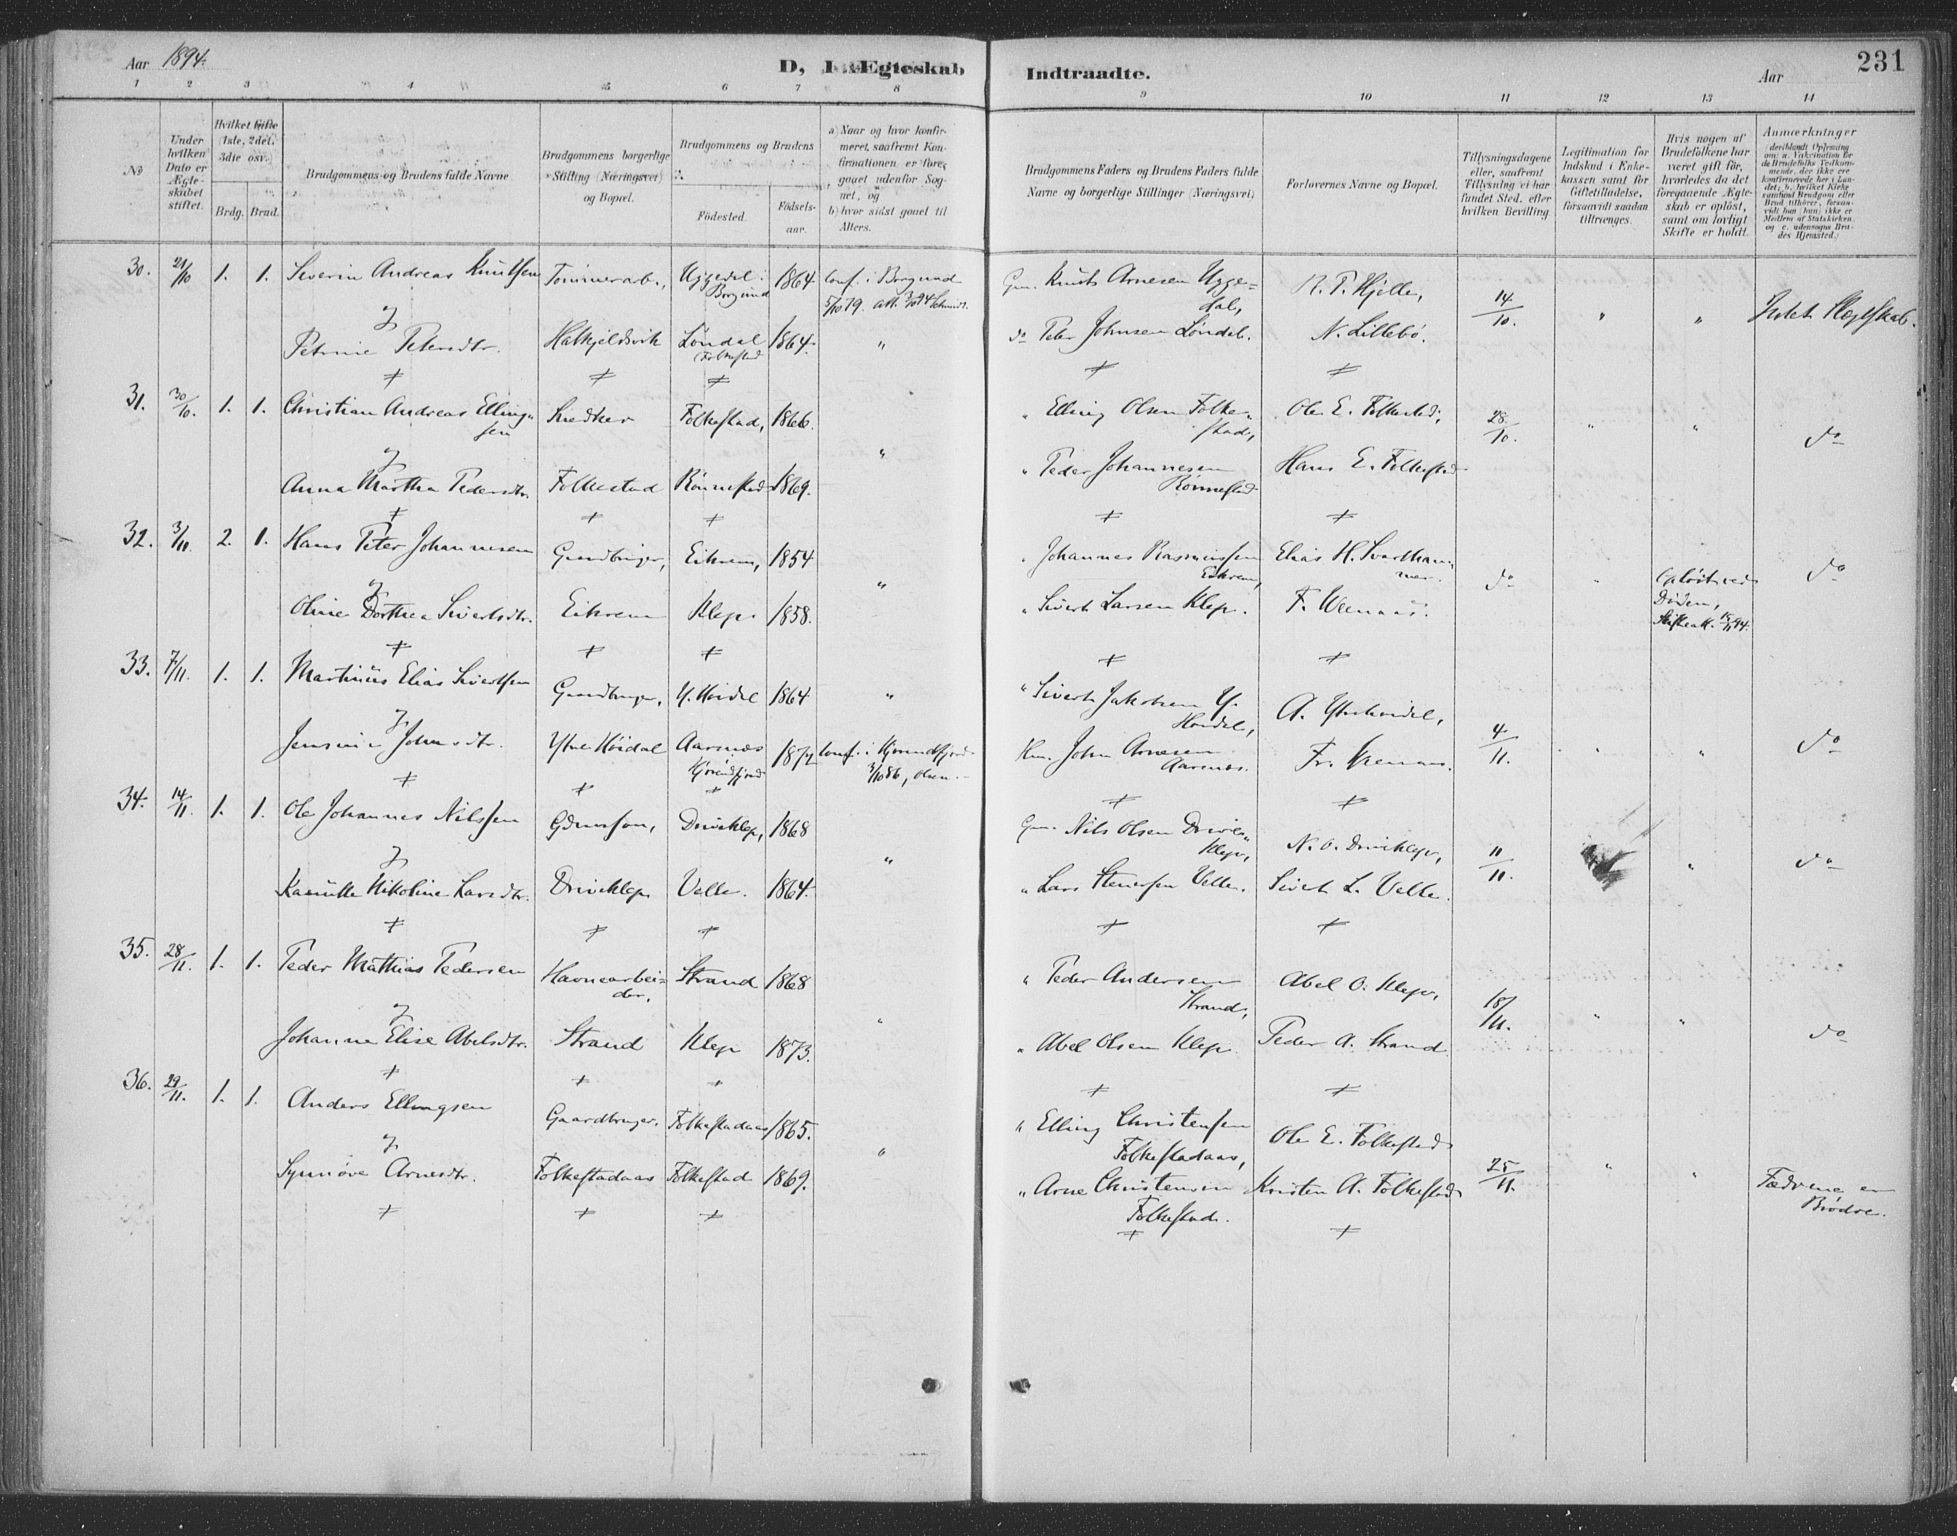 Aar 1894.
D, I Ægteskab Indtraadte.
Aar
231
1 2 3 4 5 6 7 8 9 10 11 12 13 14
No
Under hvilken Dato er Ægteskabet stiftet.
Hvilket Gifte (1ste, 2det, 3die osv.)
Brdg. Brud.
Brudgommens og Brudens fulde Navne
Brudgommens borgerlige Stilling (Næringsvei) og Bopæl.
Brudgommens og Brudens
Födested.
Födselsaar.
a) Naar og hvor konfirmeret, saafremt Konfirmationen er foregaaet udenfor Sognet, og
b) hvor sidst gaaet til Alters.
Brudgommens Faders og Brudens Faders fulde Navne og borgerlige Stillinger (Næringsvei)
Forlovernes Navne og Bopæl.
Tillysningsdagene eller, saafremt Tillysning ei har fundet Sted, efter hvilken Bevilling
Legitimation for Indskud i Enkekassen samt for Giftetilladelse, forsaavidt saadan tiltrænges.
Hvis nogen af Brudefolkene har været gift för, hvorledes da det foregaaende Ægteskab er oplöst, samt om lovligt Skifte er holdt.
Anmærkninger
30. 21/10 1. 1. Severin Andreas Knutsen Tømmerarb., Uggedal Borgund 1864 conf. i Borgund 5/10 79. Gm. Knut Arnesen Uggedal, R. P. Hjelle, 14/10. " " Intet Slegtskab.
og
Petrine Petersdtr. Hatkjeldsvik Løndal (Folkestad 1864. " do Peter Johnsen Løndal. N. Lillebø.
31. 30/10. 1. 1. Christian Andreas Ellingsen Snedker Folkestad, 1866. " " Elling Olsen Folkestad, Ole E. Folkestad, 28/10. " " do
og
Anna Martha Pedersdtr. Folkestad Rønnestad 1869. " Peder Johannesen Rønnestad Hans E. Folkestad
32. 3/11. 2. 1. Hans Peter Johannesen Gaardbruger, Eikrem, 1854 " " Johannes Rasmussen Eikrem, Elias H. Svarthammer. do " Opløst ved Døden, do
og
Oline Dorthea Sivertsdtr. Eikrem Klep. 1858. " Sivert Larsen Klep. F. Weenaas.
33. 7/11. 1. 1. Martinus Elias Sivertsen Gaardbruger, Y. Høidal 1864 " " Sivert Jakobsen Y. Høidal, A. Ytrehøidal, 4/11. " " do
og
Jensine Johnsdtr. Ytre Høidal Aarsnes Hjørundfjord conf. i Hjørundfjord 3/10 86, Olsen. Km. John Arnesen Aarsnes.
34. 14/11. 1. 1. Ole Johannes Nilssen Gdmssøn, Driveklep, 1868 " Gm. Nils Olsen Driveklep, N. O. Driveklep, 11/11. " do
og
Nikoline Larsdtr. Driveklep Velle. 1864. " Lars Steinssen Velle. Sivert L. Velle.
35. 28/11. 1. 1. Peder Mathias Pedersen Havnearbeider, Strand 1868 " " Peder Andersen Strand, Abel O. Klep, 18/11. " " do
og
Johanne Elise Abelsdtr. Strand Klep 1873. " Abel Olsen Klep. Peder A. Strand
36. 29/11. 1. 1. Anders Ellingsen Gaardbruger. Folkestadaas 1865. " " Elling Christensen Folkestadaas, Ole E. Folkestad 25/11. " " Fædrene er Brødre.
og
Synnøve Arnesdtr. Folkestadaas Folkestad 1869. " Arne Christensen Folkestad. Kristen A. Folkestad